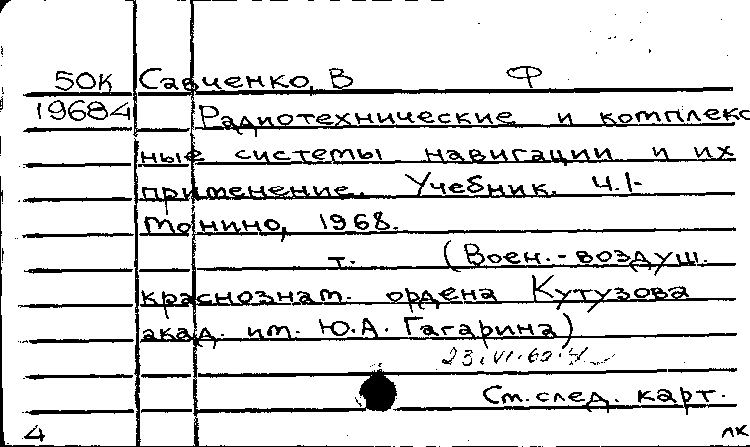 50К Савченко, В Ф
19684 Радиотехнические и комплекс
ные системы навигации и их
применение. Учебник. Ч.1-
Монино, 1968.
т. (Воен.-воздуш.
краснознам. ордена Кутузова
акад. им. Ю.А. Гагарина)
23.VI.69.
См. след. карт.
4 лк